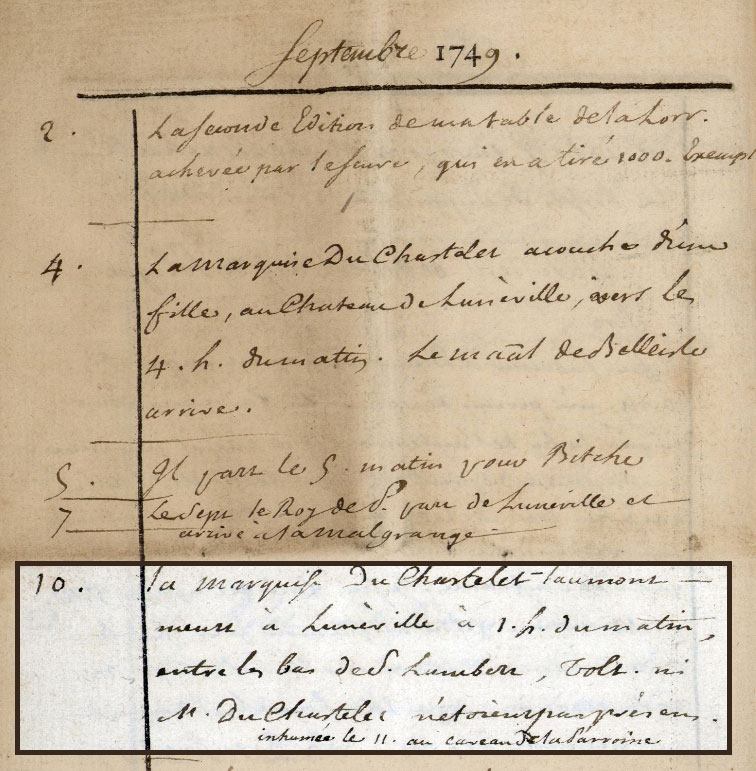 Septembre 1749.
2. La seconde Edition de ma table de la Lorr.
achevée par le feure, qui en a tiré 1000. Exempl
4. La Marquise Du Chastelet acouche d'une
fille, au Chateau de Lunéville, vers les
4. h. du matin. Le maāl de Belleisle
arrive.
5. Il part le 5. matin pour Bitche
7 Le sept le Roy de P. part de Luneville et
arrive à la malgrange
10. la marquise Du Chastelet Laumont
meurt à Lunéville à 1. h. du matin,
entre les bas de S. Lambert, Volt. ni
M. Du Chastelet n'étoient pas présens.
inhumée le 11. au caveau de la Parroisse